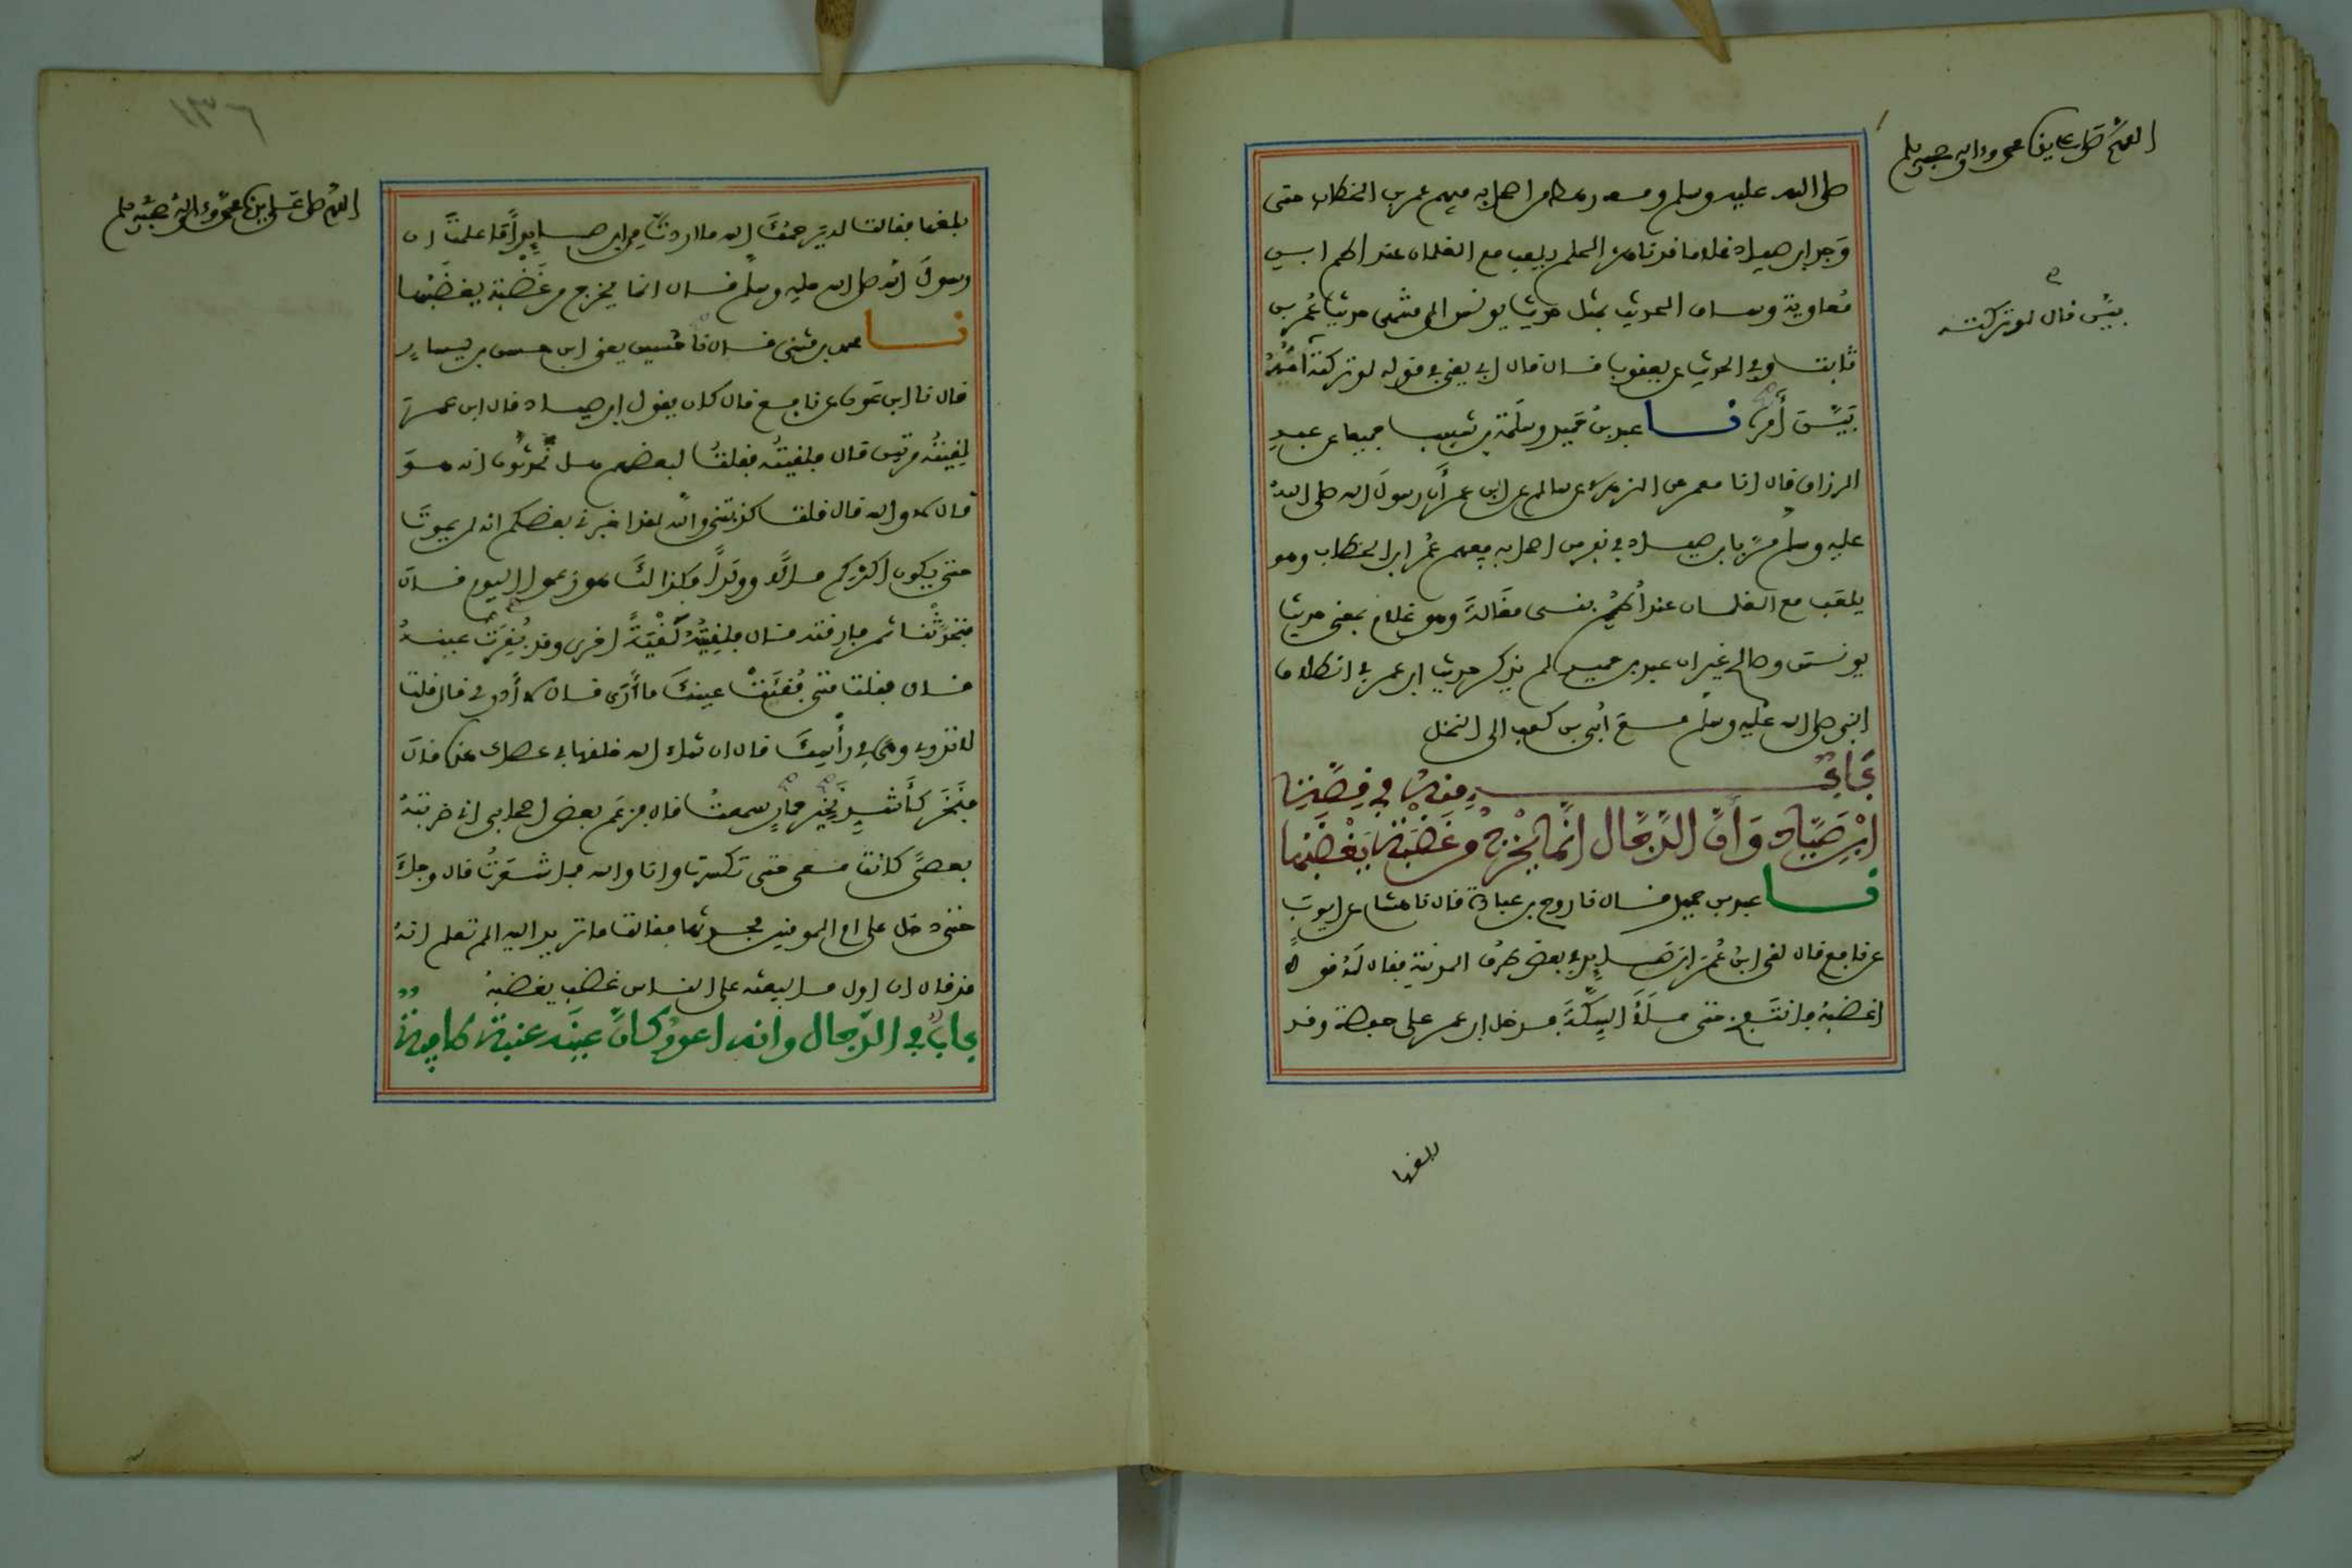 اللهم صل على سيدنا محمد وءاله وصحبه وسلم
صلى الله عليه وسلم ومعه رهط من اصحابه فيهم عمر بن الخطاب حتى
وَجد ابن صياد غلاما قد ناهز الحلم يلعب مع الغلمان عند اطم ابني
مُعاوية وساق الحديث بمثل حديث يونس الى منتهى حديث عُمر بن
ثابت وفي الحديث عن يعقوب قال قال ابي يعني في قوله لو تركته اُمُّهُ
بَيَّنَ أمره نا عبد بنُ حُميد وسَلَمة بن شبيب جميعا عن عبد
بيّن قال لو تركته
الرزاق قال انا معمر عن الزهري عن سالم عن ابن عمر أن رسولَ الله صلى اللهُ
عليه وسلم مَرَّ بابن صياد في نفر من اصحابه فيهم عُمر ابن الخطاب وهو
يلعَب مع الغلمان عند أُطُم بني مغَالةَ وهو غلام بمعنى حديث
يونسَ وصالح غير ان عبد بن حميد لم يذكر حديث ابن عمر في انطلاق
النبي صلى الله عليه وسلم مع أُبي بن كعب الى النخل
بَابٌ منهُ في قِصَّةِ
ابْنِ صَيَّاد وَأنَّ الدَّجَّال انَّما يَخْرُجُ من غَضْبَة يَغْضَبُها
نا عبد بن حميد قال نا روح بن عبادة قال نا هشام عن ايوبَ
عن نافع قال لقي ابنُ عُمرَ ابنَ صيادٍ في بعض طرُق المدينة فقال لهُ قولاً
اغضبهُ فانتفَخ حتى ملأ السِّكَّةَ فدخل ابن عمر على حفصة وقد
بلغها
اللهم صل على سيدنا محمد وءاله وصحبه وسلم
بلغها فقالت له يرحمُكَ الله ما اردتَ من ابن صيادٍ أما علمتَ ان
رسولَ الله صلى الله عليه وسلم قال انما يخرج من غَضْبَة يغضَبُها
نا محمد بن مثنى قال نا حُسين يعني ابن حسن بن يسارٍ
قال نا ابن عَون عن نافع قال كان يقول ابن صياد قال ابن عمر
لقيتُه مرتين قال فلقيتُه فقلتُ لبعضهم هل تُحدِّثُون انه هوَ
قال لا والله قال قلت كذبتني والله لقد اخبرني بعضكم انه لن يموتَ
حتى يكون أكثركم مالاً وولَداً فكذالكَ هو زعموا اليوم قال
فتحدَّثْنا ثم فارقته قال فلقيتُهُ لَقْيَةً اخرى وقد نُفِرَتْ عينهُ
قال فقلت متى فُعِلَتْ عينُكَ ما أرى قال لا أدري قال قلت
لا تدري وهي في رأسِكَ قال ان شاء الله خلقها في عصاك هذه قال
فنَخَر كأشدِّ نَخيرِ حمارٍ سمعتُ قال فزعم بعض اصحابي اني ضربتهُ
بعصًى كانت معي حتى تكسرت وانا والله فما شعَرتُ قال وجاءَ
حتى دخل على ام المومنين فحدثها فقالت ما تريد اليه الم تعلم انهُ
قد قال ان اول ما يبعثه على الناس غضب يغضبهُ
باب في الدّجال وانه اعورُ كأنّ عينَه عنبة طافية